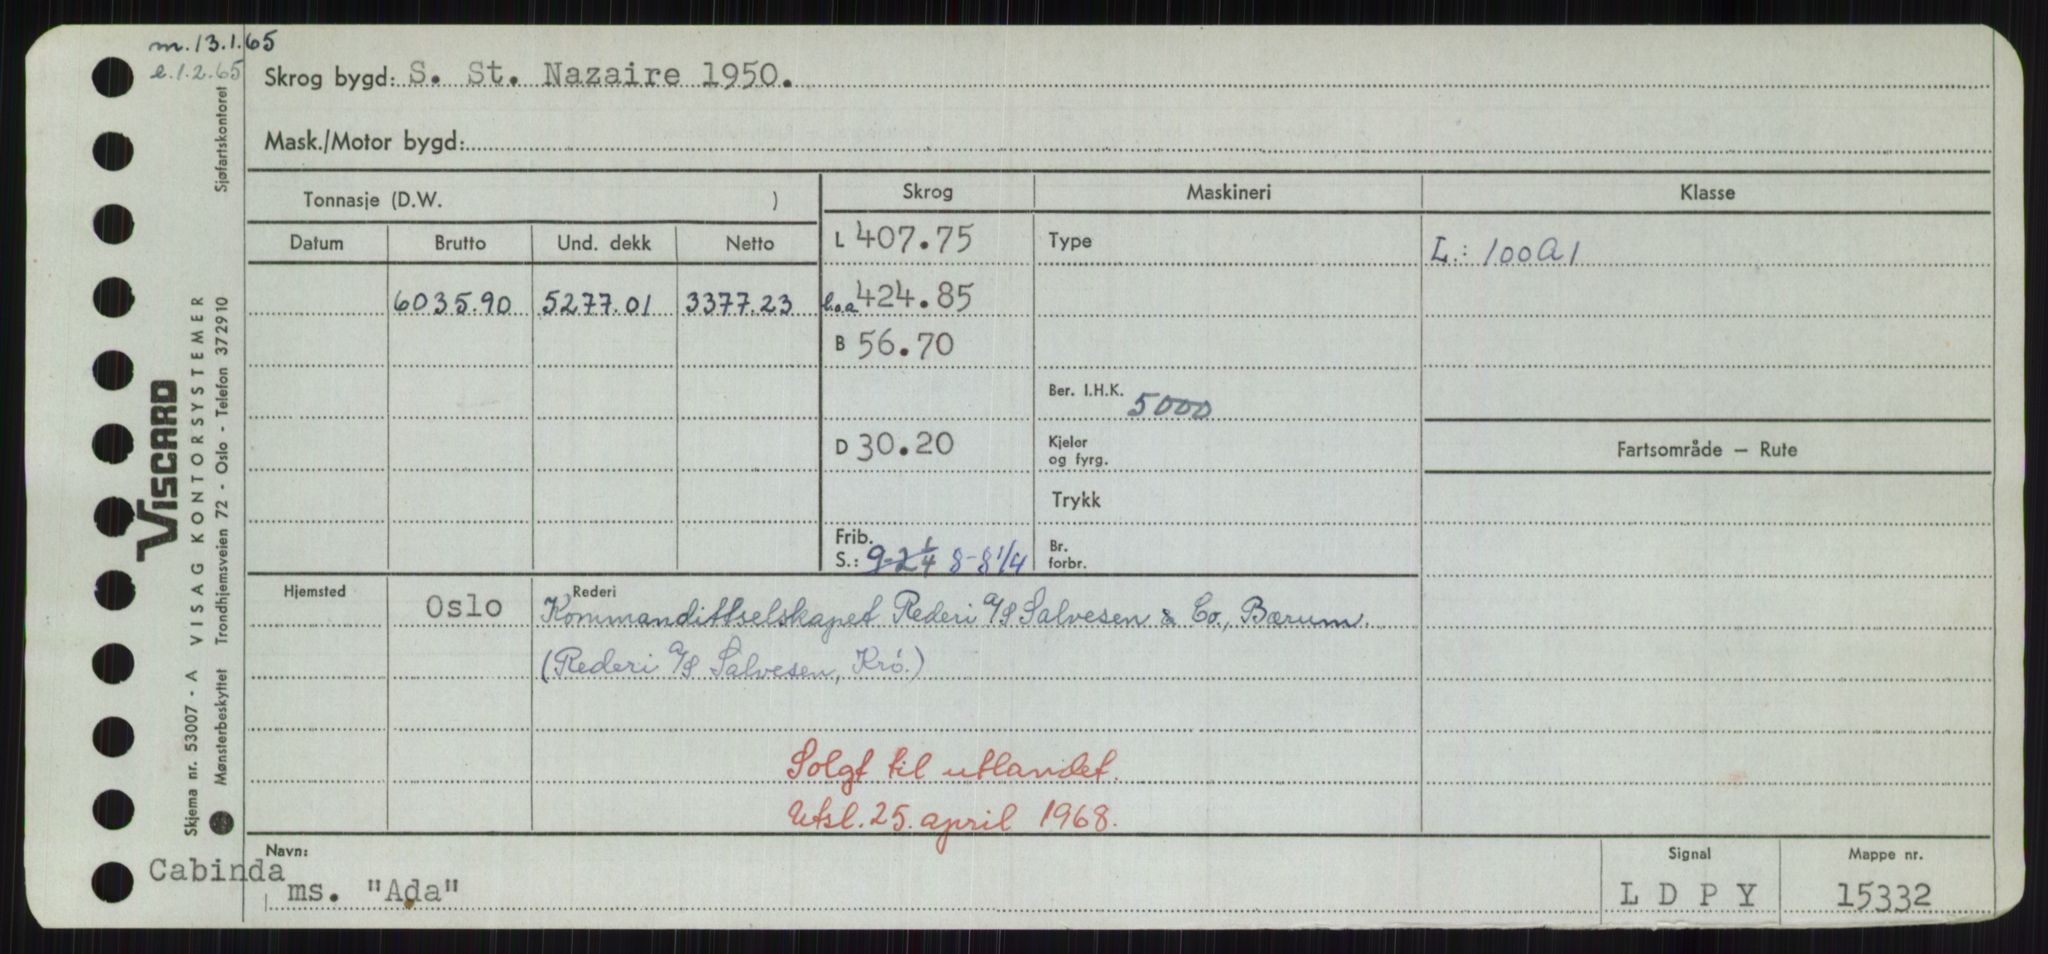 m. 13.1.65
e. 1.2.65
Skrog bygd: S. St. Nazaire 1950.
Mask./Motor bygd:
Tonnasje (D.W. )
Skrog
Maskineri
Klasse
Datum
Brutto
Und. dekk
Netto
L 407.75
Type
L.: 100A1
6035.90
5277.01
3377.23
l.o.a 424.85
B 56.70
Ber. I.H.K. 5000
D 30.20
Kjeler
og fyrg.
Fartsområde – Rute
Trykk
Frib.
S.: 9-2 1/4 8-8 1/4
Br.
forbr.
Hjemsted
Oslo
Rederi
Kommandittselskapet Rederi A/S Salvesen & Co., Bærum.
(Rederi A/S Salvesen, Krö.)
Solgt til utlandet.
Utsl. 25. april 1968.
Navn:
Cabinda
ms. "Ada"
Signal
L D P Y
Mappe nr.
15332
VISCARD
Skjema nr. 53007 - A VISAG KONTORSYSTEMER
Mønsterbeskyttet Trondhjemsveien 72 - Oslo - Telefon 372910 Sjøfartskontoret